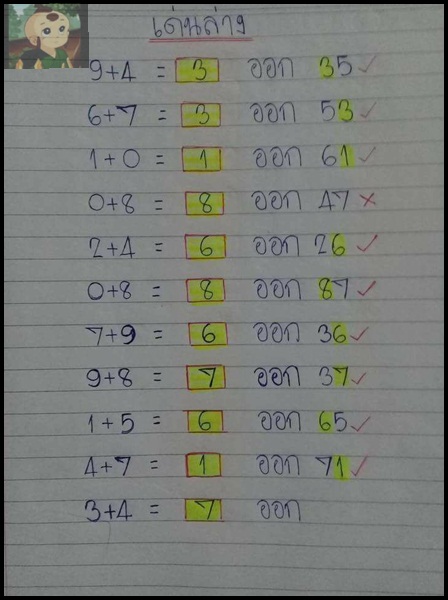 เด่นล่าง
9+4 = 3 ออก 35 ✓
6+7 = 3 ออก 53 ✓
1+0 = 1 ออก 61 ✓
0+8 = 8 ออก 47 ×
2+4 = 6 ออก 26 ✓
0+8 = 8 ออก 87 ✓
7+9 = 6 ออก 36 ✓
9+8 = 7 ออก 37 ✓
1+5 = 6 ออก 65 ✓
4+7 = 1 ออก 71 ✓
3+4 = 7 ออก